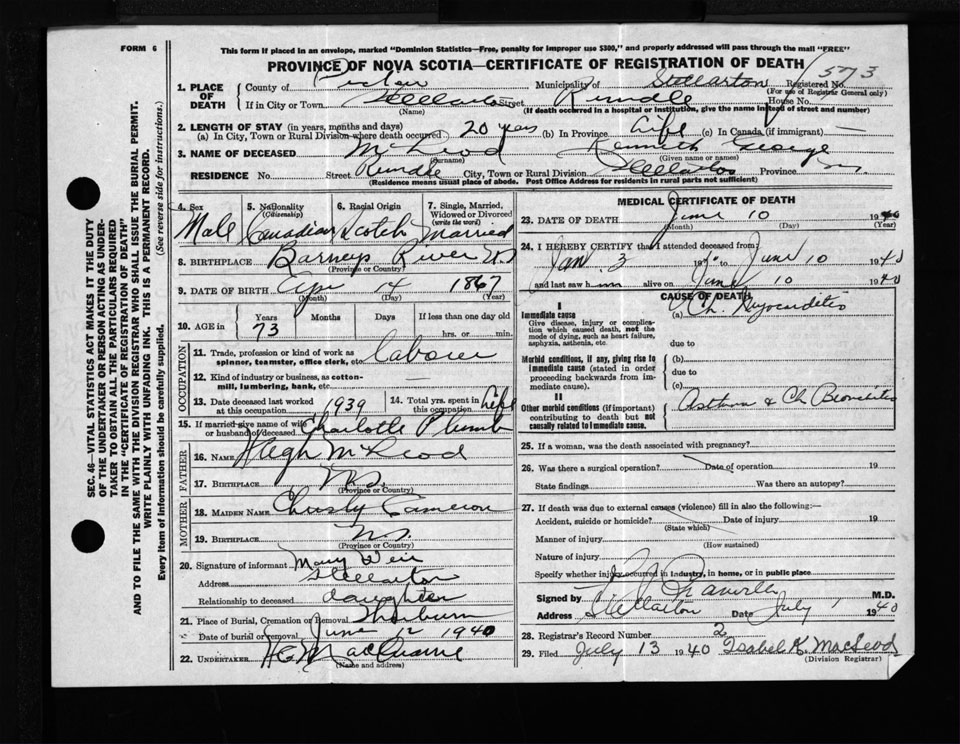 FORM 6
This form if placed in an envelope, marked "Dominion Statistics—Free, penalty for improper use $300," and properly addressed will pass through the mail "FREE"
PROVINCE OF NOVA SCOTIA—CERTIFICATE OF REGISTRATION OF DEATH
1. PLACE OF DEATH County of Pictou Municipality of Stellarton Registered No. 573
(For use of Registrar General only)
If in City or Town Stellarton Street Rundle House No.
(Name) (If death occurred in a hospital or institution, give the name instead of street and number)
2. LENGTH OF STAY (in years, months and days)
(a) In City, Town or Rural Division where death occurred 20 years (b) In Province Life (c) In Canada (if immigrant) —
3. NAME OF DECEASED McLeod Kenneth George
(Surname) (Given name or names)
RESIDENCE No. Street Rundle City, Town or Rural Division Stellarton Province
(Residence means usual place of abode. Post Office Address for residents in rural parts not sufficient)
SEC. 46—VITAL STATISTICS ACT MAKES IT THE DUTY
OF THE UNDERTAKER OR PERSON ACTING AS UNDER-
TAKER TO OBTAIN ALL THE PARTICULARS REQUIRED
IN THE "CERTIFICATE OF REGISTRATION OF DEATH"
AND TO FILE THE SAME WITH THE DIVISION REGISTRAR WHO SHALL ISSUE THE BURIAL PERMIT.
WRITE PLAINLY WITH UNFADING INK. THIS IS A PERMANENT RECORD.
Every item of information should be carefully supplied. (See reverse side for instructions.)
4. Sex 5. Nationality (Citizenship) 6. Racial Origin 7. Single, Married, Widowed or Divorced (write the word)
Male Canadian Scotch Married
8. BIRTHPLACE Barneys River NS
(Province or Country)
9. DATE OF BIRTH Apr 14 1867
(Month) (Day) (Year)
10. AGE in Years Months Days If less than one day old
73 hrs. or min.
OCCUPATION
11. Trade, profession or kind of work as spinner, teamster, office clerk, etc. Laborer
12. Kind of industry or business, as cotton-mill, lumbering, bank, etc. —
13. Date deceased last worked at this occupation 1939 14. Total yrs. spent in this occupation Life
15. If married give name of wife or husband of deceased Charlotte Plumb
FATHER
16. Name Hugh McLeod
17. Birthplace N.S.
(Province or Country)
MOTHER
18. Maiden Name Christy Cameron
19. Birthplace N.S.
(Province or Country)
20. Signature of informant Mary Weir
Address Stellarton
Relationship to deceased daughter
21. Place of Burial, Cremation or Removal Thorburn
Date of burial or removal June 12 1940
22. Undertaker
(Name and address)
MEDICAL CERTIFICATE OF DEATH
23. DATE OF DEATH June 10 1940
(Month) (Day) (Year)
24. I HEREBY CERTIFY that I attended deceased from
Jan 3 19 to June 10 1940
and last saw him alive on June 10 1940
CAUSE OF DEATH
I
Immediate cause (a) Ch. Myocarditis
Give disease, injury or complication which caused death, not the mode of dying, such as heart failure, asphyxia, asthenia, etc.
due to
Morbid conditions, if any, giving rise to immediate cause (stated in order proceeding backwards from immediate cause).
(b)
due to
(c)
II
Other morbid conditions (if important) contributing to death but not causally related to immediate cause.
Asthma & Ch Bronchitis
25. If a woman, was the death associated with pregnancy?
26. Was there a surgical operation? Date of operation 19
State findings Was there an autopsy?
27. If death was due to external causes (violence) fill in also the following:—
Accident, suicide or homicide? Date of injury 19
(State which)
Manner of injury
(How sustained)
Nature of injury
Specify whether injury occurred in industry, in home, or in public place
Signed by M.D.
Address Stellarton Date July 1 1940
28. Registrar's Record Number 2
29. Filed July 13 1940 Isabel K. MacLeod
(Division Registrar)